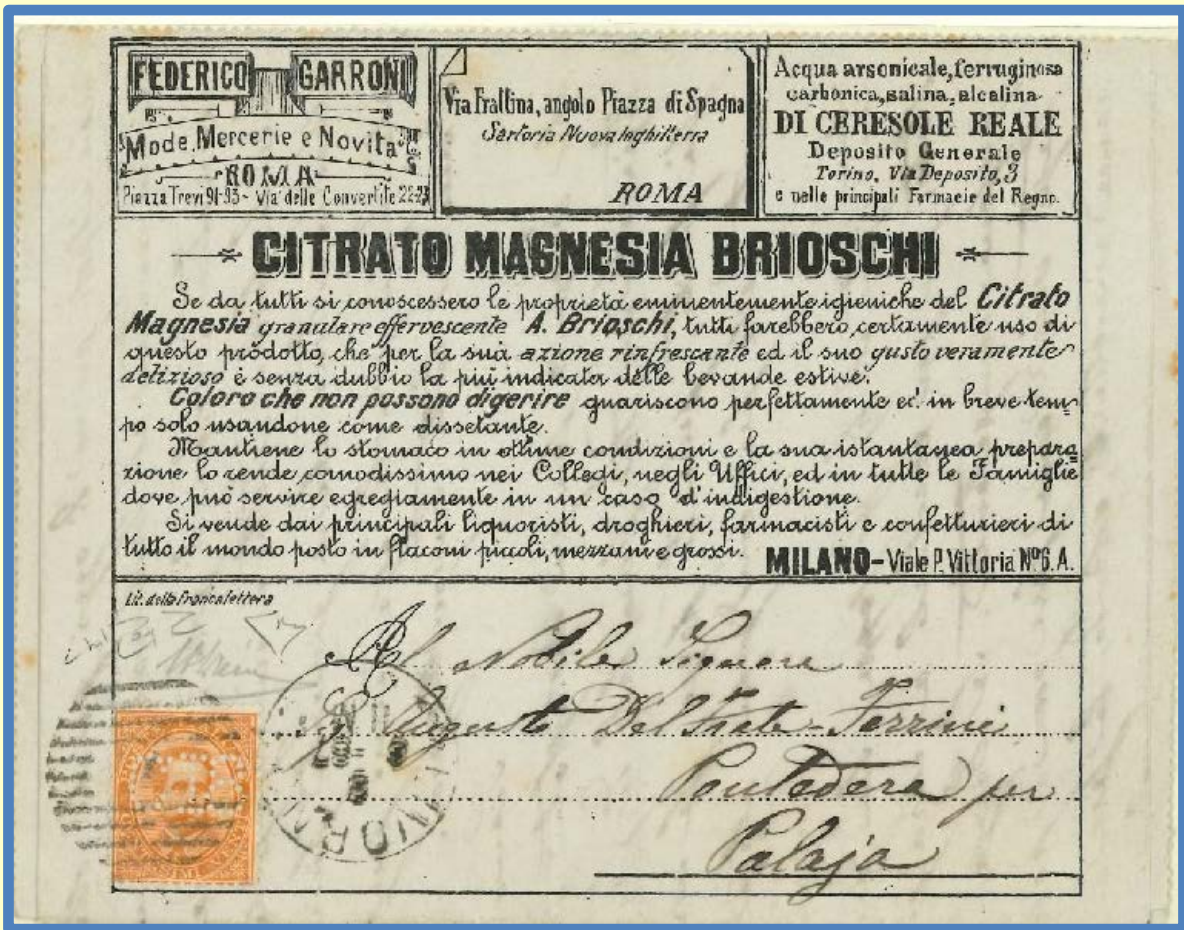 FEDERICO GARRONI
Mode, Mercerie e Novita
ROMA
Piazza Trevi 91-93 - Via delle Convertite 22-23
Via Frattina, angolo Piazza di Spagna
Sartoria Nuova Inghilterra
ROMA
Acqua arsonicale, ferruginosa
carbonica, salina, alcalina
DI CERESOLE REALE
Deposito Generale
Torino, Via Deposito, 3
e nelle principali Farmacie del Regno.
CITRATO MAGNESIA BRIOSCHI
Se da tutti si conoscessero le proprietà eminentemente igieniche del Citrato
Magnesia granulare effervescente A. Brioschi, tutti farebbero certamente uso di
questo prodotto, che per la sua azione rinfrescante ed il suo gusto veramente
delizioso è senza dubbio la più indicata delle bevande estive.
Coloro che non possono digerire guariscono perfettamente ed in breve tem-
po solo usandone come dissetante.
Mantiene lo stomaco in ottime condizioni e la sua istantanea prepara=
zione lo rende comodissimo nei Collegi, negli Uffici, ed in tutte le Famiglie
dove può servire egregiamente in un caso d'indigestione.
Si vende dai principali liquoristi, droghieri, farmacisti e confetturieri di
tutto il mondo posto in flaconi piccoli, mezzani e grossi. MILANO - Viale P. Vittoria Nº 6. A.
Lit. della Francalettera
Al Nobile Signore
Sig Augusto Del Prete-Ferrini
Pontedera per
Palaja